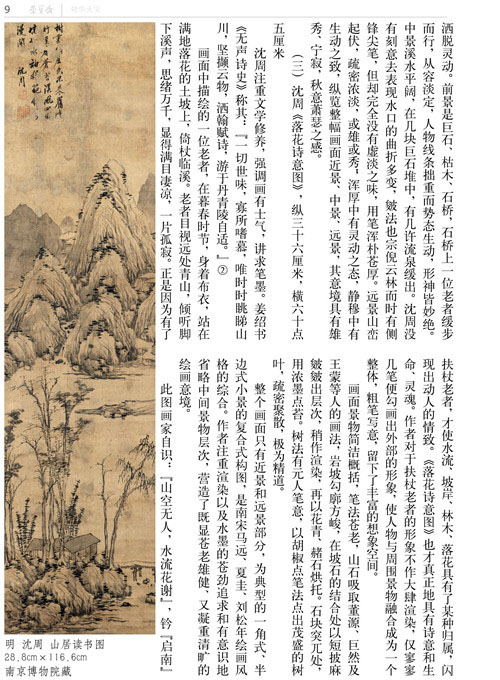 9
洒脱灵动。前景是巨石、枯木、石桥，石桥上一位老者缓步
而行，从容淡定，人物线条拙重而势态生动，形神皆妙绝。
中景溪水平阔，在几块巨石堆中，有几许流泉缓出。沈周没
有刻意去表现水口的曲折多变，皴法也宗倪云林而时有侧
锋尖笔，但却完全没有虚淡之味，用笔浑朴苍厚。远景山峦
起伏，疏密浓淡，或雄或秀，浑厚中有灵动之态，静穆中有
生动之致，纵览整幅画面近景、中景、远景，其意境具有雄
秀、宁寂，秋意萧瑟之感。
（三）沈周《落花诗意图》，纵三十六厘米，横六十点
五厘米
沈周注重文学修养，强调画有士气，讲求笔墨。姜绍书
《无声诗史》称其：『一切世味，寡所嗜慕，唯时时眺睇山
川，坚撷云物，洒翰赋诗，游于丹青陵自适。』②
画面中描绘的一位老者，在暮春时节，身着布衣，站在
满地落花的土坡上，倚杖临溪。老者目视远处青山，倾听脚
下溪声，思绪万千，显得满目凄凉，一片孤寂。正是因为有了
扶杖老者，才使水流、坡岸、林木、落花具有了某种归属，闪
现出动人的情致。《落花诗意图》也才真正地具有诗意和生
命、灵魂。作者对于扶杖老者的形象不作大肆渲染，仅寥寥
几笔便勾画出外部的形象，使人物与周围景物融合成为一个
整体，粗笔写意，留下了丰富的想象空间。
画面景物简洁概括，笔法苍老，山石吸取董源、巨然及
王蒙等人的画法，岩坡勾廓方峻，在坡石的结合处以短披麻
皴皴出层次，稍作渲染，再以花青、赭石烘托。石块突兀处，
用浓墨点苔。树法有元人笔意，以胡椒点笔法点出茂盛的树
叶，疏密聚散，极为精道。
整个画面只有近景和远景部分，为典型的一角式、半
边式小景的复合式构图，是南宋马远、夏圭、刘松年绘画风
格的综合。作者注重渲染以及水墨的苍劲追求和有意识地
省略中间景物层次，营造了既显苍老雄健、又凝重清旷的
绘画意境。
此图画家自识：『山空无人，水流花谢』，钤『启南』
明 沈周 山居读书图
28.8cm×116.6cm
南京博物院藏